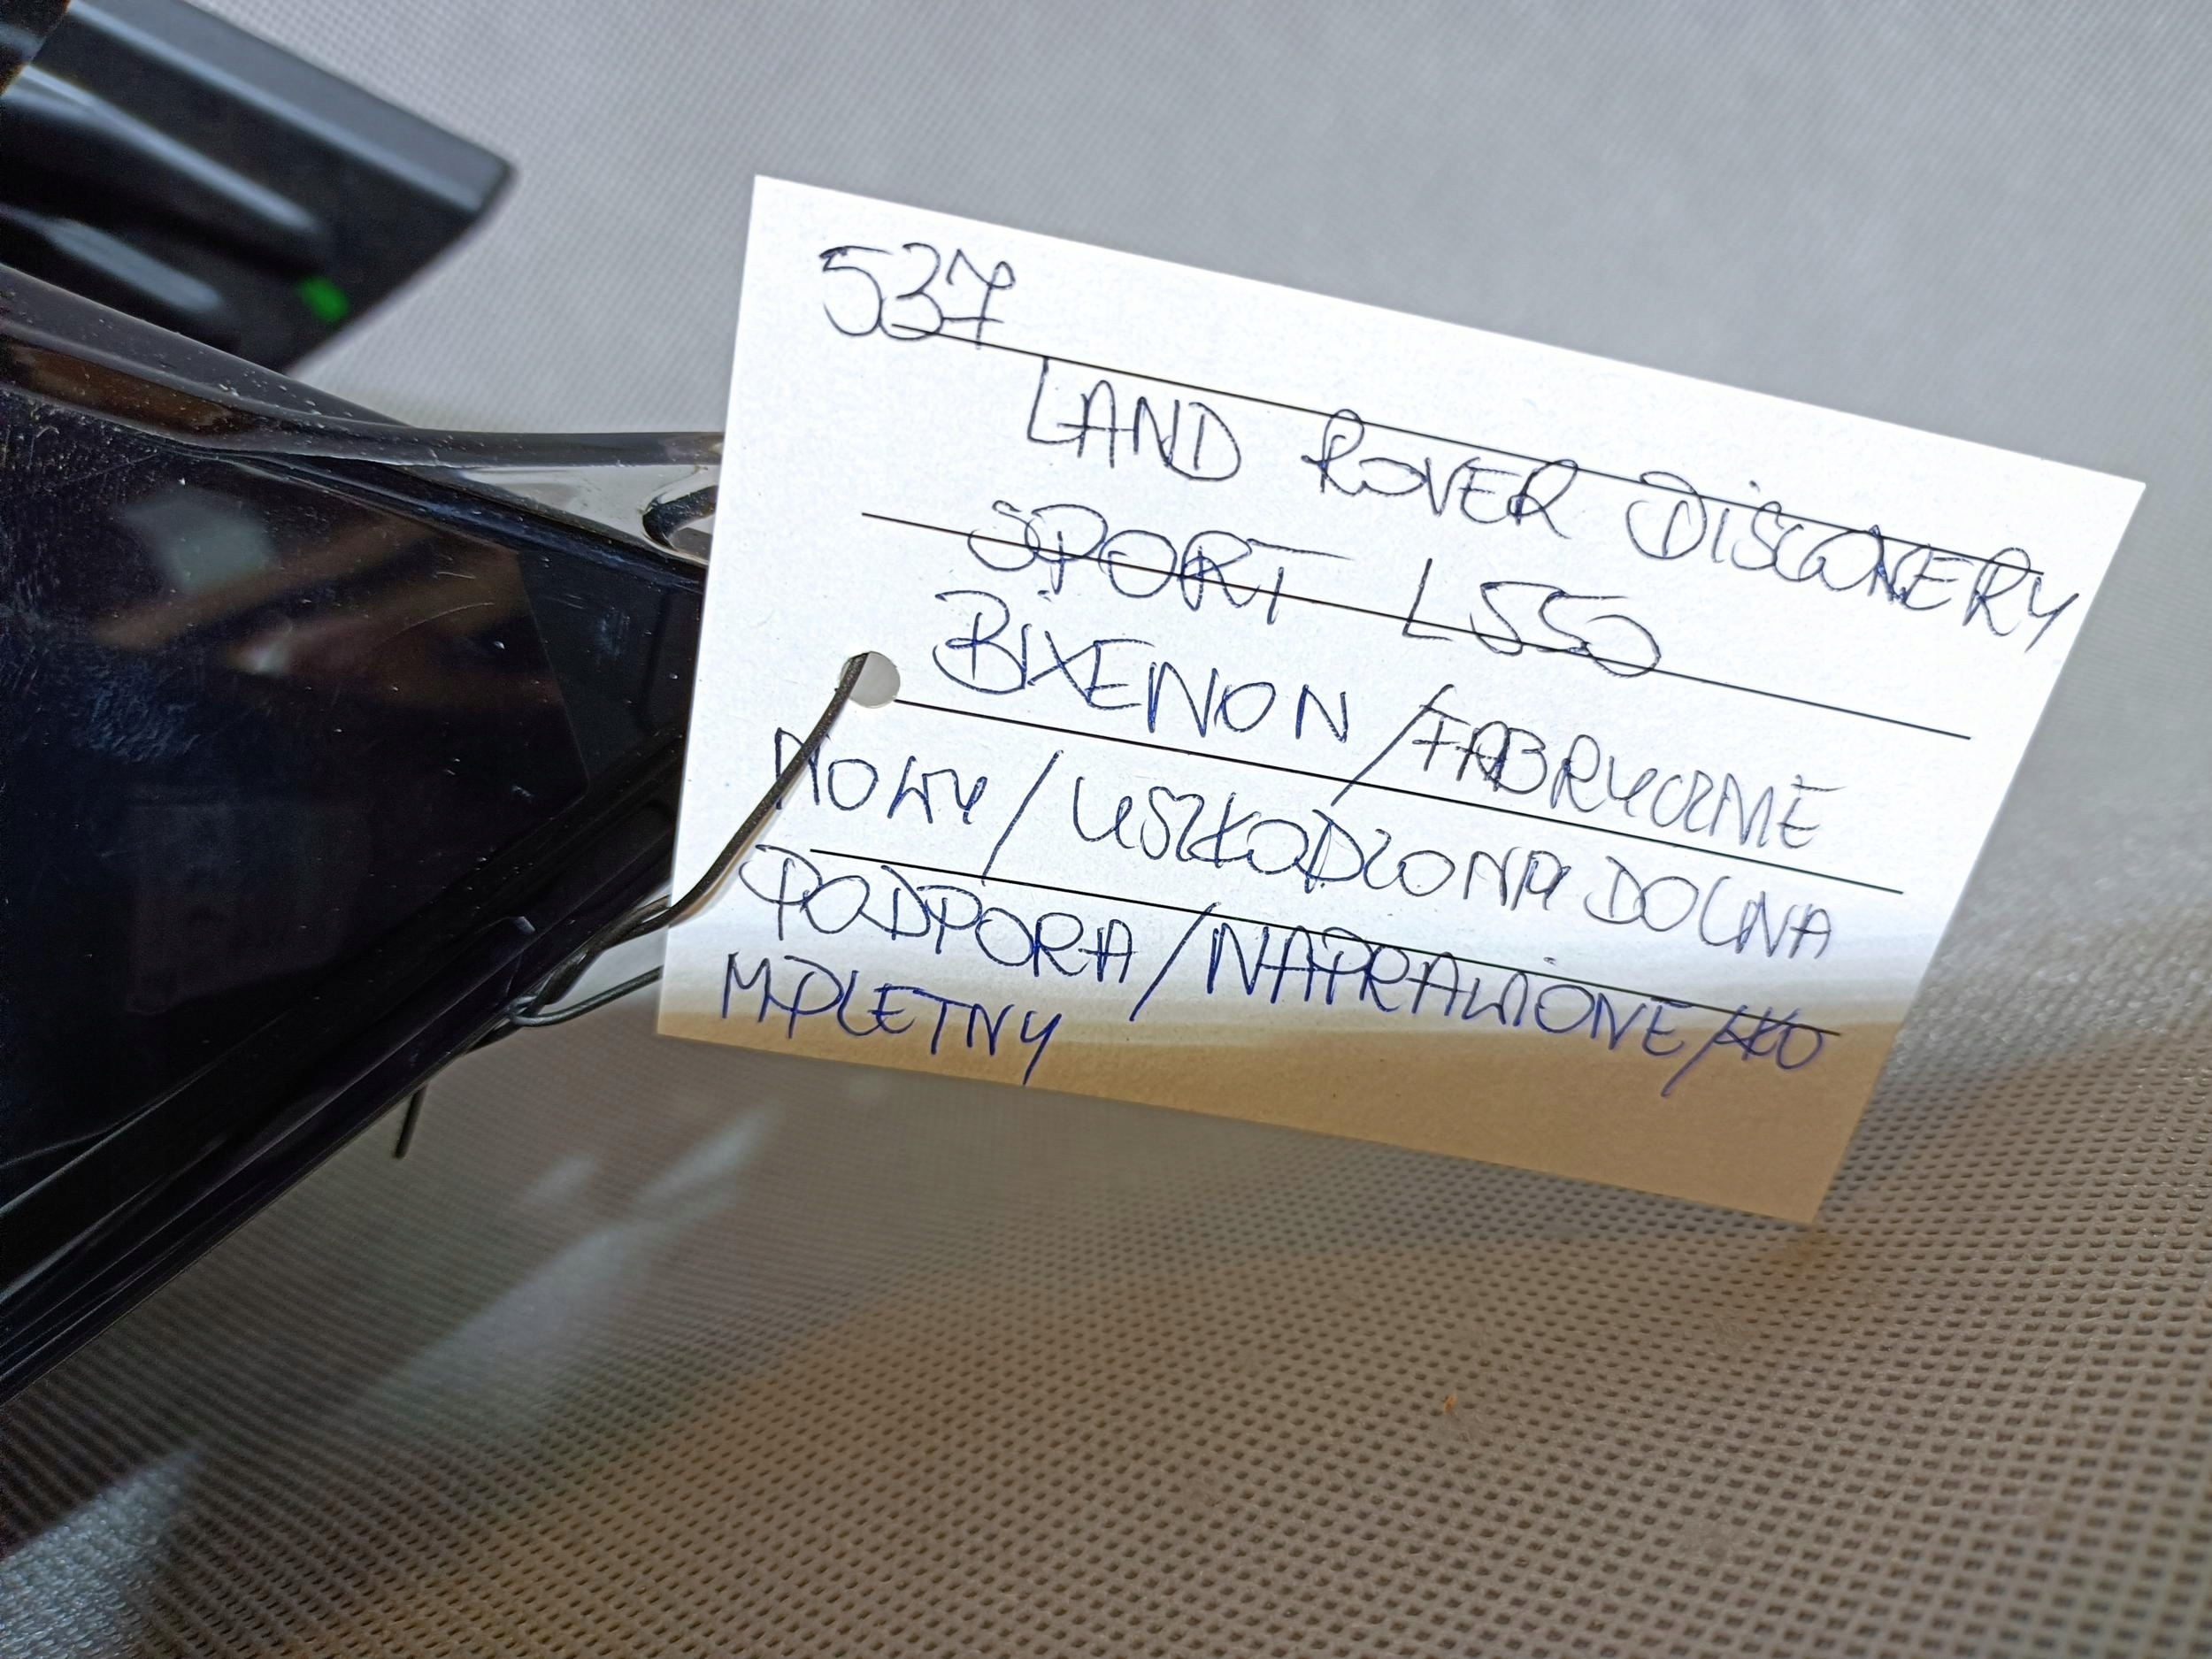 537
LAND ROVER DISCOVERY
SPORT L550
BIXENON / FABRYCZNIE
NOWY / USZKODZONA DOLNA
PODPORA / NAPRAWIONE / KO
MPLETNY